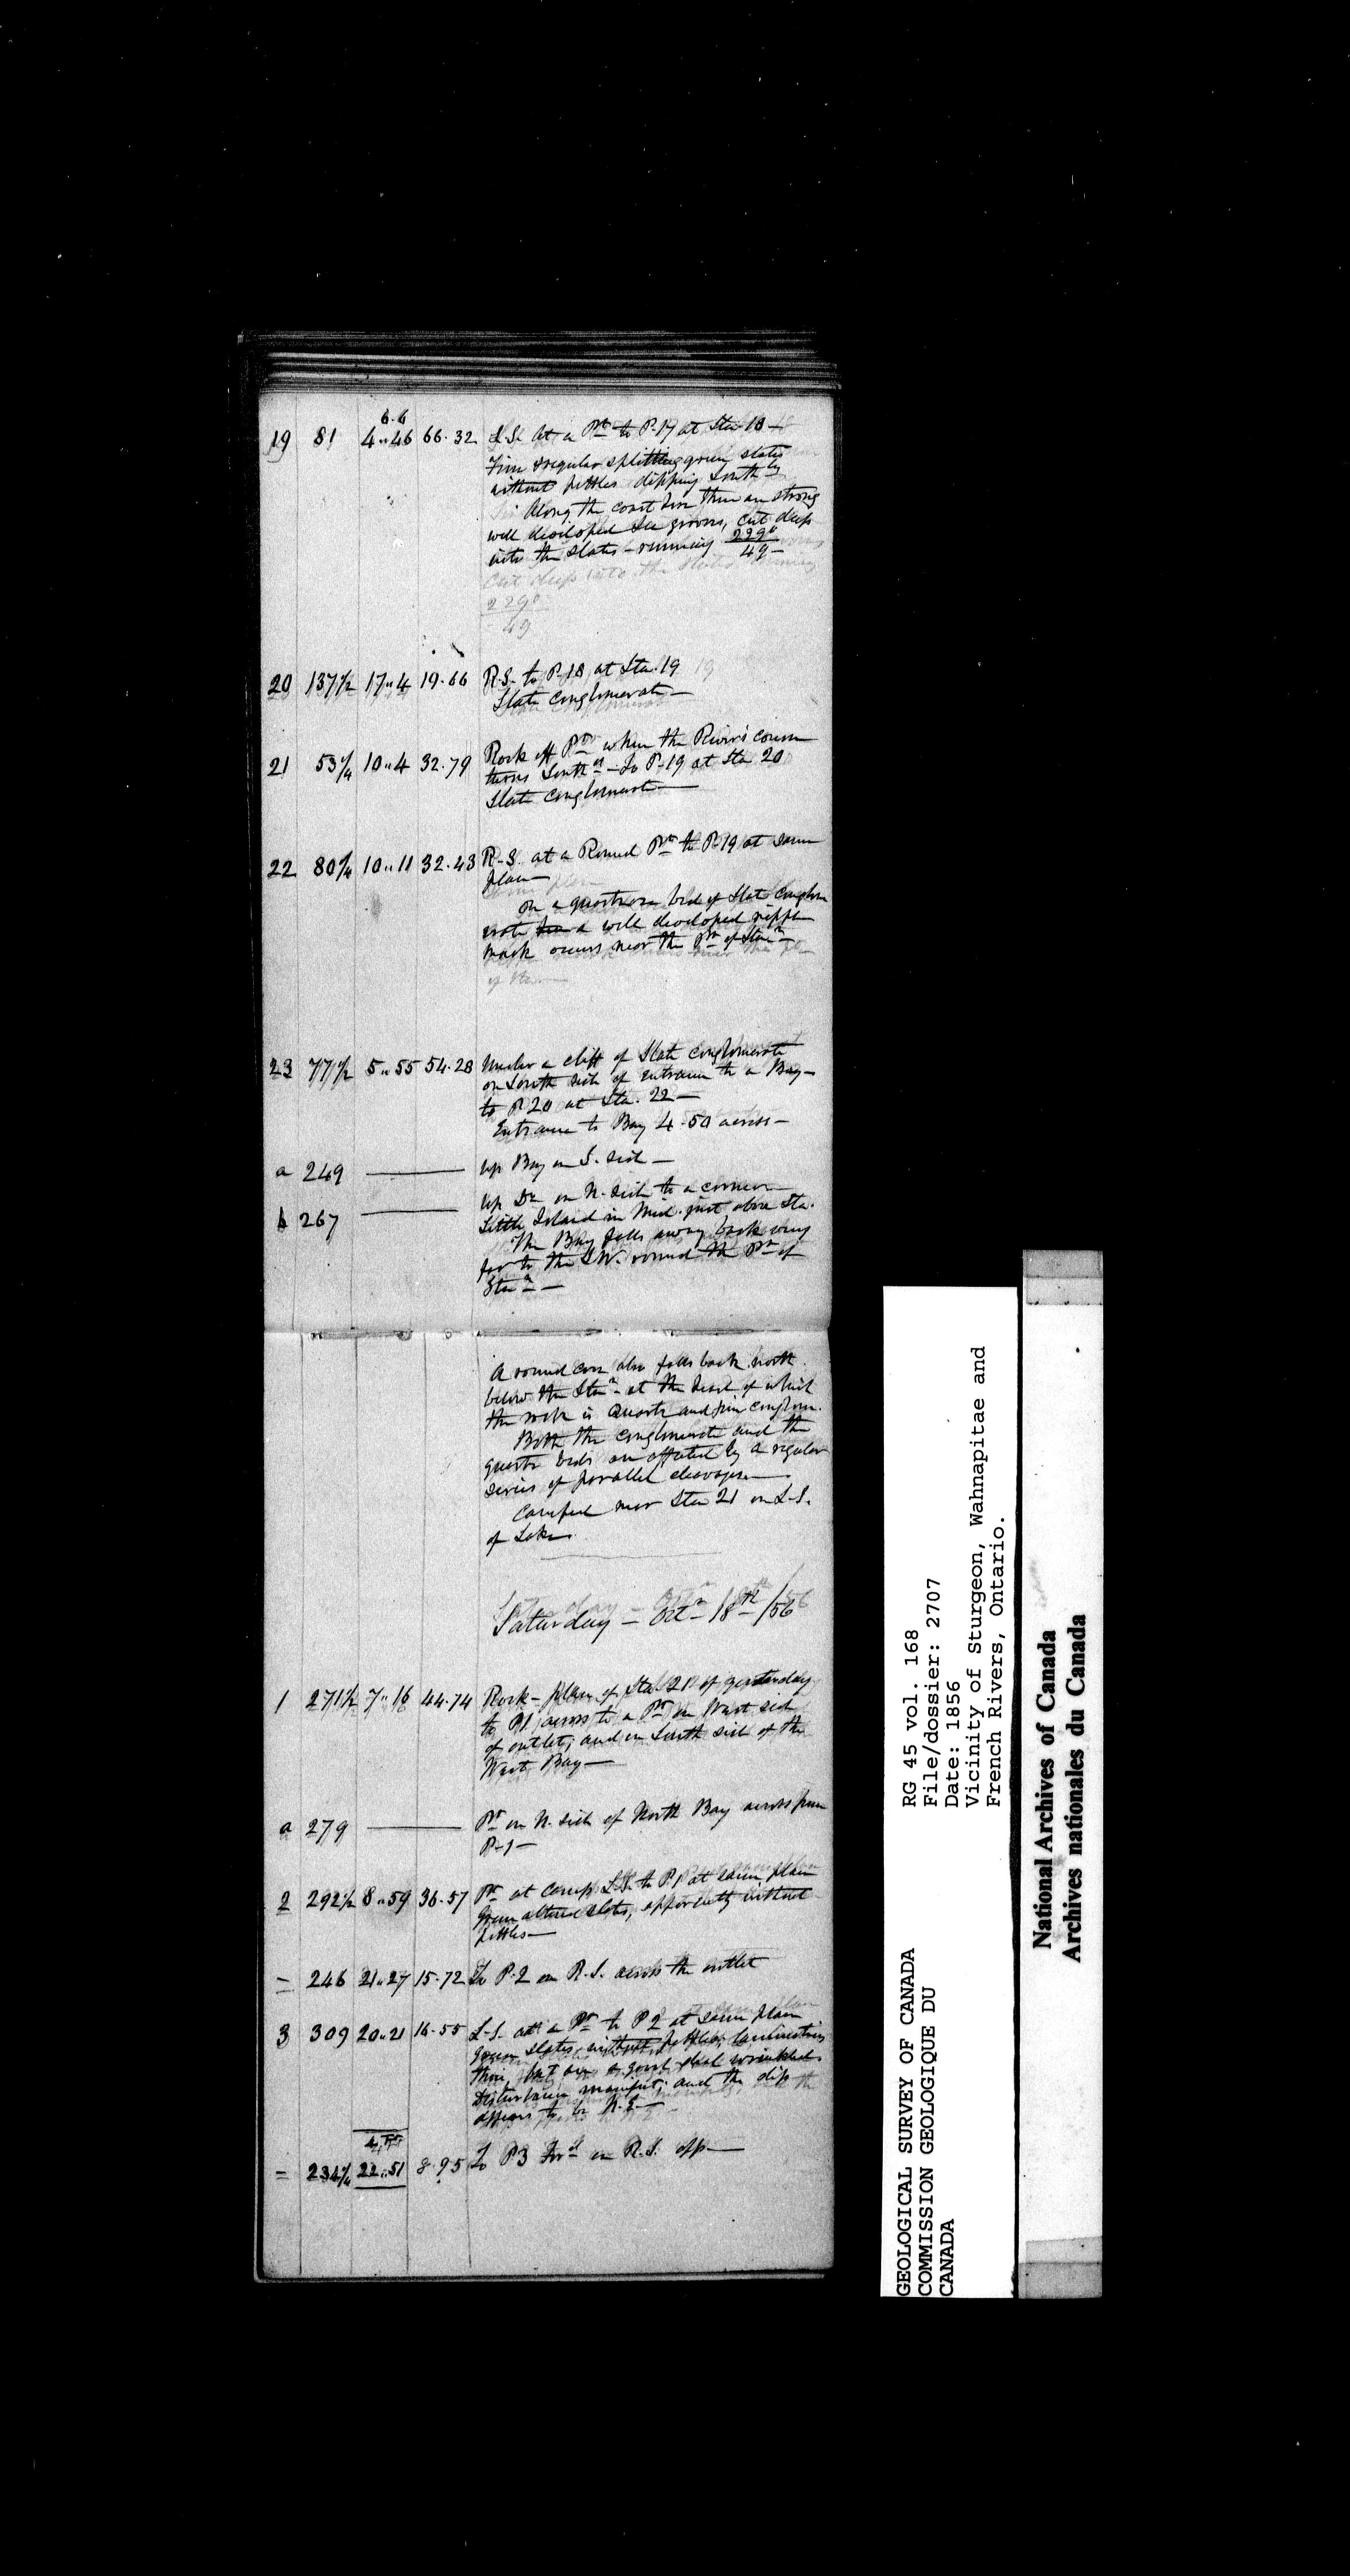 6.6
19 81 4..46 66.32 L.S. At a Pt to P.17 at Sta 18 —
Fine irregular splitting green slates
without pebbles dipping South ly
Along the coast line there are strong
well developed Ice grooves, cut deep
into the slates — running 229°
49 —
cut deep into the slates running
229°
49
20 137½ 17..4 19.66 R.S. to P.18, at Sta. 19
Slate conglomerate —
21 53¼ 10..4 32.79 Rock off Pt when the River's course
turns South — to P.19 at Sta 20
Slate conglomerate —
22 80¼ 10..11 32.43 R.S. at a Round Pt to P.19 at same
place —
On a quartzose bed of Slate conglom
erate a well developed ripple
mark occurs near the Pt of Stan —
of Sta. —
23 77½ 5..55 54.28 Under a cliff of Slate conglomerate
on South side of entrance to a Bay —
to P.20 at Sta. 22 —
Entrance to Bay 4.50 across —
a 249 —— up Bay on S. side —
b 267 —— up Do on N. side to a corner —
Little Island in Mid. just above Sta.
The Bay falls away back very
far to the S.W. round the Pt of
Stan —
A round cove also falls back north
below the Stan — at the head of which
the rock is Quartz and fine conglom.
Both the conglomerate and the
quartz beds are affected by a regular
series of parallel cleavages —
Camped near Sta 21 on L.S.
of Lake.
Saturday — Octr 18th /56
1 271½ 7..16 44.74 Rock — place of Sta 21 of yesterday
to P1, across to a Pt on West side
of outlet, and on South side of the
West Bay —
a 279 —— Pt on N. side of North Bay across from
P-1 —
2 292½ 8..59 36.57 Pt at camp L.S. to P1 at same place
green altered slates, apparently without
pebbles —
= 246 21..27 15.72 To P.2 on R.S. across the outlet
3 309 20..21 16.55 L-S. at a Pt to P2 at same place
green slates, without pebbles, laminations
thin, but are a good deal wrinkled.
Disturbance manifest, and the dip
appears to be N.E. —
= 234¼ 22..51 8.95 To P3 For d on R.S. opp —
GEOLOGICAL SURVEY OF CANADA
COMMISSION GEOLOGIQUE DU
CANADA
RG 45 vol. 168
File/dossier: 2707
Date: 1856
Vicinity of Sturgeon, Wahnapitae and
French Rivers, Ontario.
National Archives of Canada
Archives nationales du Canada